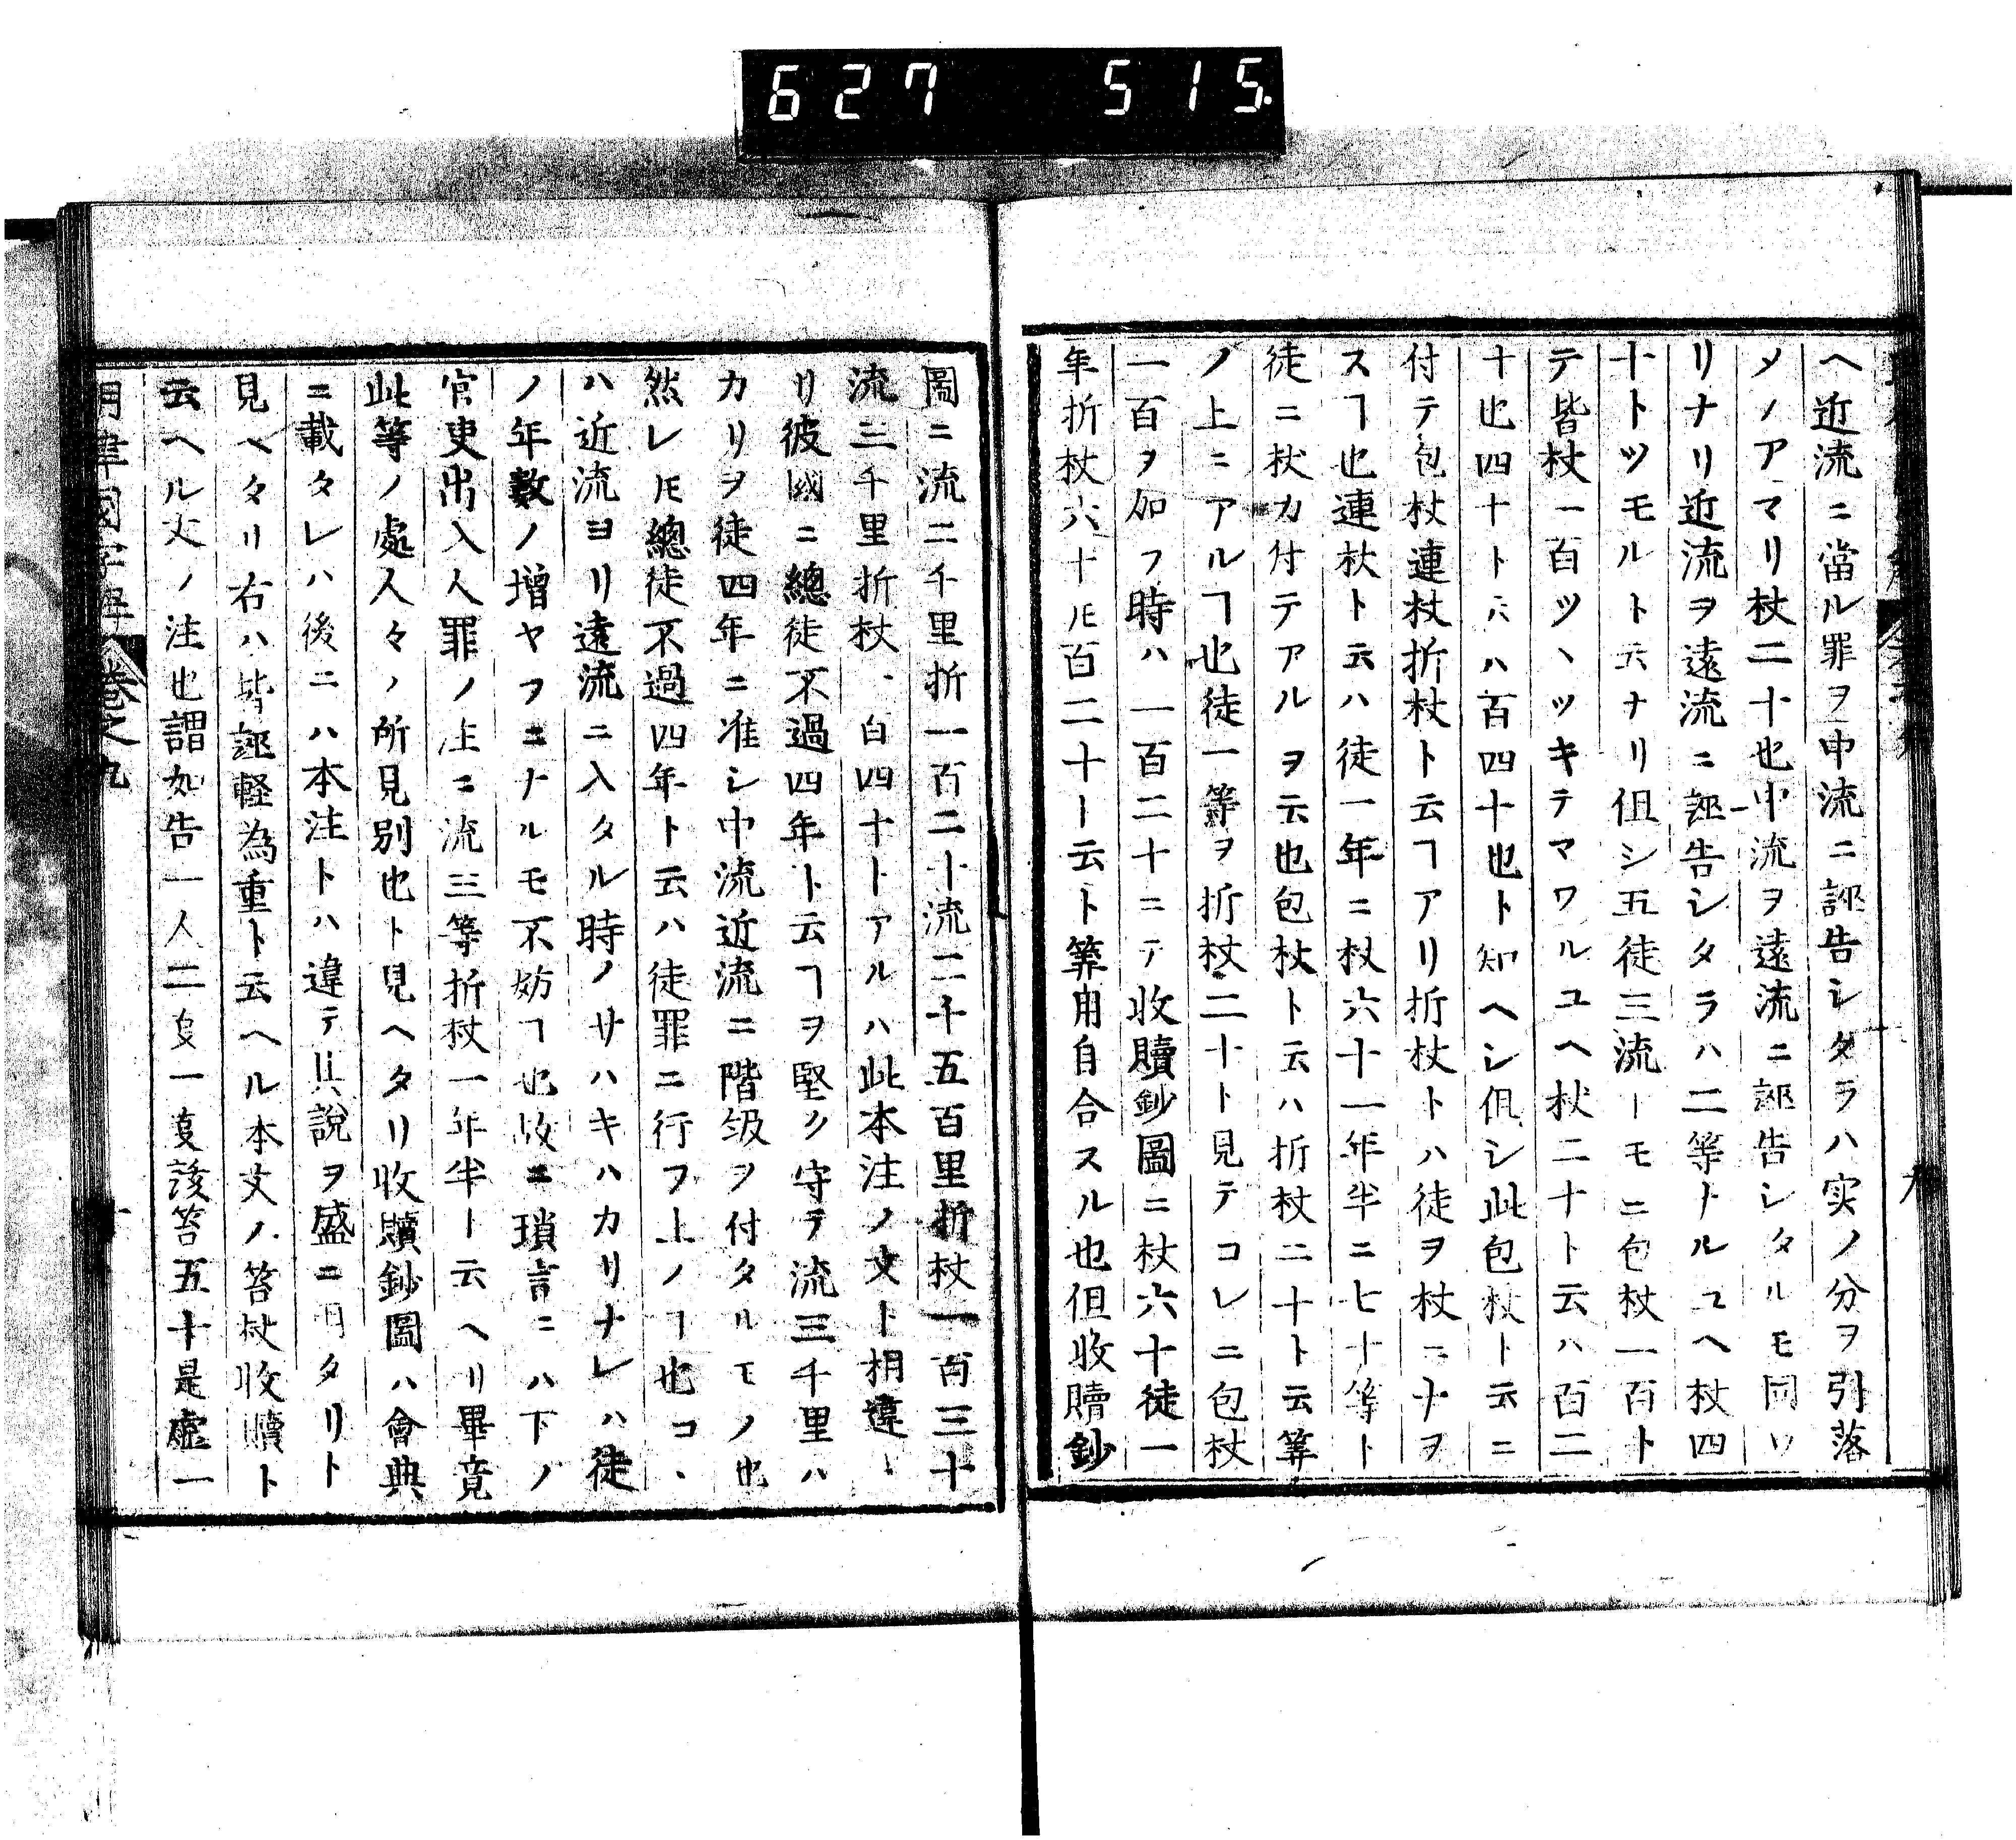 627 515.
ヘ近流ニ當ル罪ヲ中流ニ誣告シタラハ実ノ分ヲ引落
メノアマリ杖二十也中流ヲ遠流ニ誣告シタルモ同シ
リナリ近流ヲ遠流ニ誣告シタラハ二等トルユヘ杖四
十トツモルト云ナリ但シ五徒三流トモニ包杖一百ト
テ皆杖一百ツヽツキテマワルユヘ杖二十ト云ハ百二
十也四十ト云ハ百四十也ト知ヘシ但シ此包杖ト云ニ
付テ包杖連杖折杖ト云ヿアリ折杖トハ徒ヲ杖ニナヲ
スヿ也連杖ト云ハ徒一年ニ杖六十一年半ニ七十等ト
徒ニ杖カ付テアルヲ云也包杖ト云ハ折杖二十ト云筭
ノ上ニアルヿ也徒一等ヲ折杖二十ト見テコレニ包杖
一百ヲ加フ時ハ一百二十ニテ收贖鈔圖ニ杖六十徒一
年折杖六十𪜈百二十ト云ト筭用自合スル也但收贖鈔
圖ニ流二千里折一百二十流二千五百里折杖一百三十
流三千里折杖一百四十トアルハ此本注ノ文ト相違ヽ
リ彼國ニ總徒不過四年ト云ヿヲ堅ク守テ流三千里ハ
カリヲ徒四年ニ准シ中流近流ニ階级ヲ付タルモノ也
然レ𪜈總徒不過四年ト云ハ徒罪ニ行フ上ノヿ也コヽ
ハ近流ヨリ遠流ニ入タル時ノサハキハカリナレハ徒
ノ年数ノ增ヤフニナルモ不妨ヿ也故ニ瑣言ニハ下ノ
官吏出入人罪ノ注ニ流三等折杖一年半ト云ヘリ畢竟
此等ノ處人々ノ所見別也ト見ヘタリ收贖鈔圖ハ會典
ニ載タレハ後ニハ本注トハ違テ其說ヲ盛ニ用タリト
見ヘタリ右ハ皆誣軽為重ト云ヘル本文ノ笞杖收贖ト
云ヘル文ノ注也謂如告一人二㕝一㕝該笞五十是虚一
明律國字解 卷之九